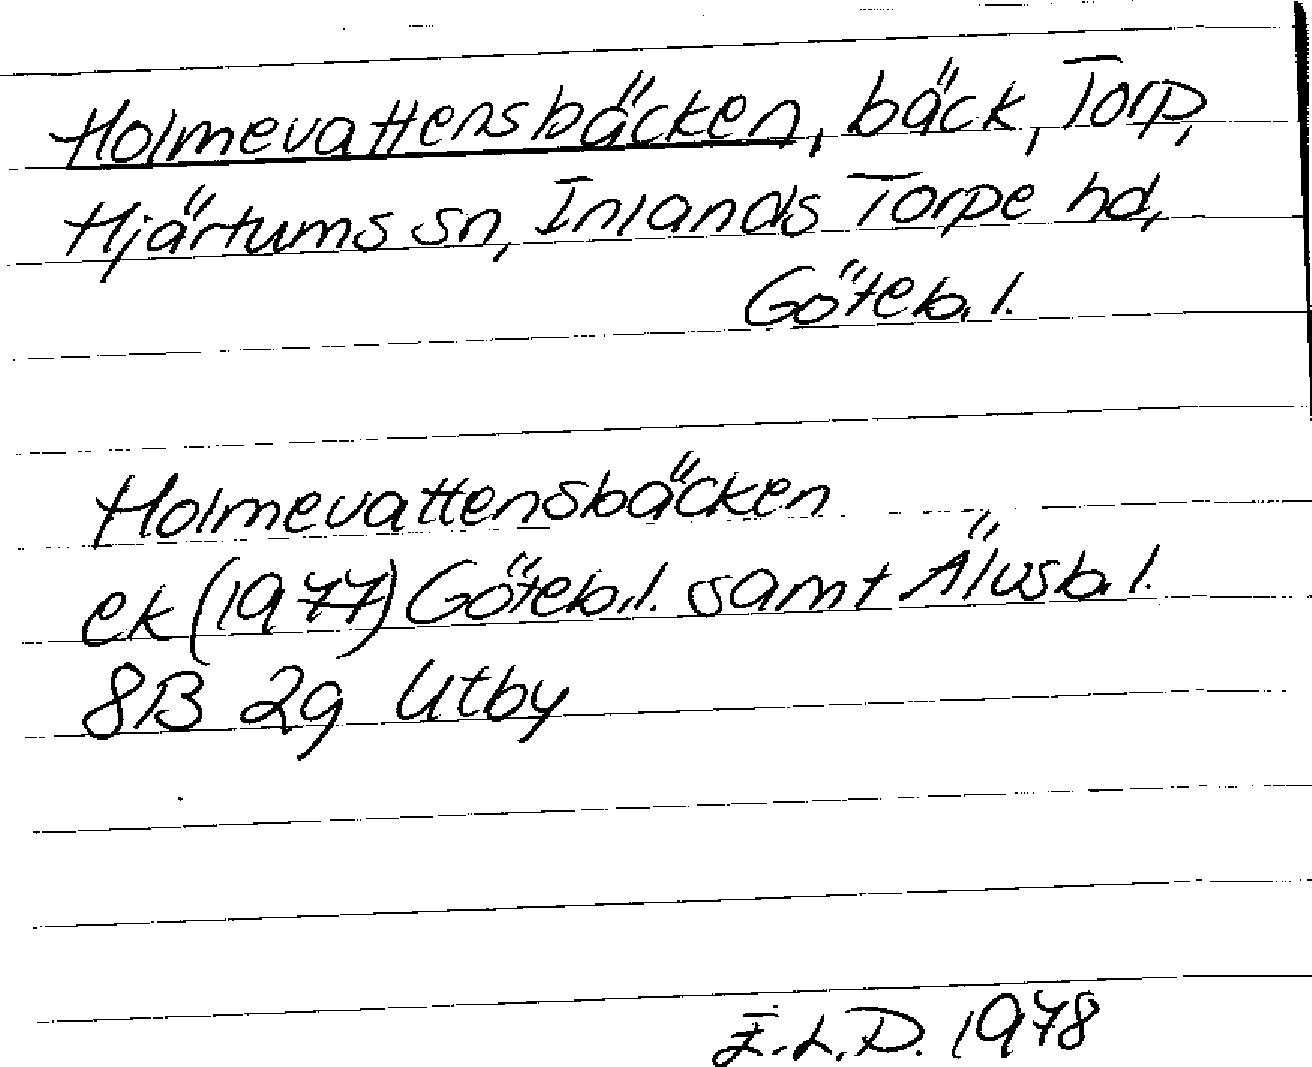 Holmevattensbäcken, bäck, Torp,
Hjärtums sn, Inlands Torpe hd,
Göteb. l.
Holmevattensbäcken
ek (1977) Göteb. l. samt Älvsb. l.
8B 2g Utby
E.L.D. 1978